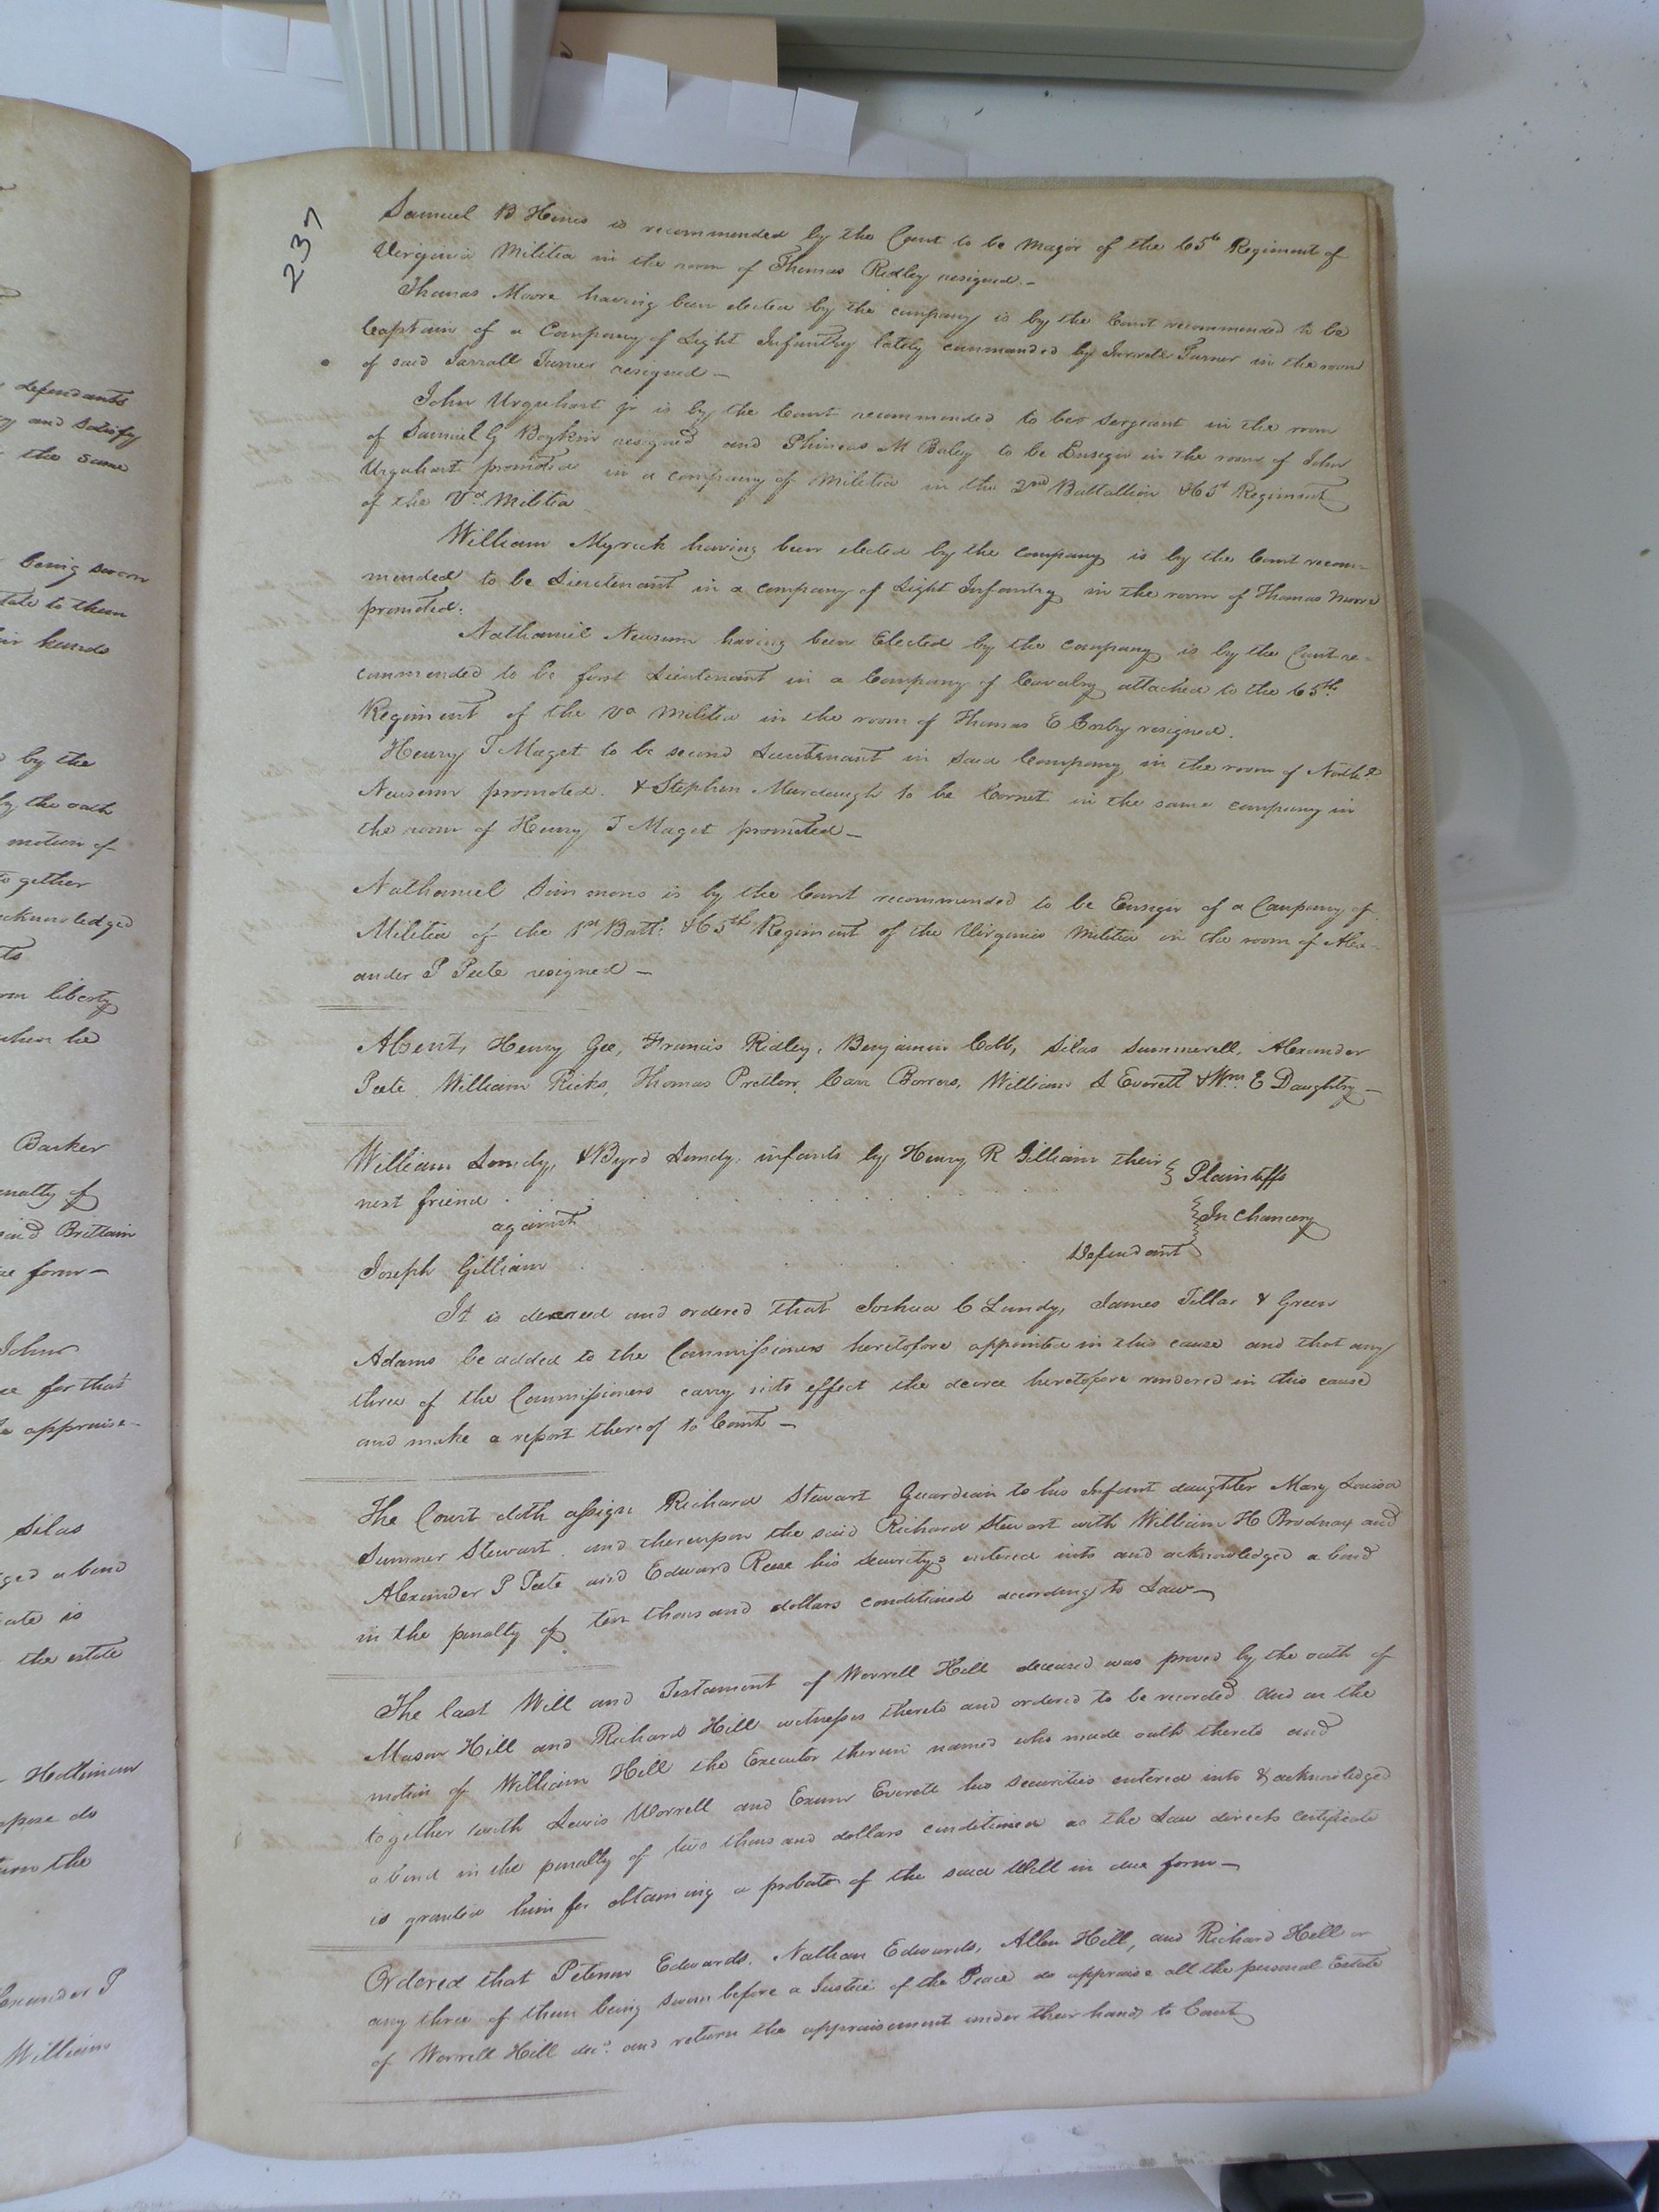 defendants
and satisfy
the same
being sworn
tate to them
ir hands
by the
by the oath
motion of
together
acknowledged
ts
rm liberty
when he
Barker
enalty of
said Brittain
ue form —
John
ce for that
appraise-
Silas
ged a bond
cate is
the estate
Holliman
ppose do
turn the
lexander P
William
237
Samuel B Hines is recommended by the Court to be Major of the 65th Regiment of
Virginia Militia in the room of Thomas Ridley resigned. —
Thomas Moore having been elected by the company is by the Court recommended to be
Captain of a Company of Light Infantry lately commanded by Jarrall Turner in the room
of said Jarrall Turner resigned —
John Urquhart Jr is by the Court recommended to be sergeant in the room
of Samuel G Boykin resigned and Phineas M Baley to be Ensign in the room of John
Urquhart promoted in a company of Militia in the 2nd Battallion &65t Regiment
of the Va Militia
William Myrick having been elected by the company is by the Court recom-
mended to be Lieutenant in a company of Light Infantry in the room of Thomas Moore
promoted.
Nathaniel Newsum having been Elected by the company is by the Court re-
commended to be first Lieutenant in a Company of Cavalry attached to the 65th
Regiment of the Va Militia in the room of Thomas E Cosby resigned.
Henry T Maget to be second Lieutenant in said Company in the room of Nathl
Newsum promoted. & Stephen Murdaugh to be Cornet in the same company in
the room of Henry T Maget promoted —
Nathaniel Simmons is by the Court recommended to be Ensign of a Company of
Militia of the 1st Batt: &65th Regiment of the Virginia Militia in the room of Alex-
ander P Peete resigned —
Absent, Henry Gee, Francis Ridley, Benjamin Cobb, Silas Summerell, Alexander
Peete, William Ricks, Thomas Pretlow, Carr Bowers, William S Everett & Wm. E Daughtry —
William Lundy, & Byrd Lundy, infants by Henry R Gilliam their } Plaintiffs
next friend
against } In Chancery
Joseph Gilliam Defendant
It is decreed and ordered that Joshua C Lundy, James Tillar & Green
Adams be added to the Commissioners heretofore appointed in this cause and that any
three of the Commissioners carry into effect the decree heretofore rendered in this cause
and make a report thereof to Court —
The Court doth assign Richard Stewart Guardian to his Infant daughter Mary Louisa
Sumner Stewart. and thereupon the said Richard Stewart with William H Brodnax and
Alexander P Peete and Edward Reese his securitys entered into and acknowledged a bond
in the penalty of ten thousand dollars conditioned according to Law —
The last Will and Testament of Worrell Hill deceased was proved by the oath of
Mason Hill and Richard Hill witnesses thereto and ordered to be recorded And on the
motion of William Hill the Executor therein named who made oath thereto and
together with Lewis Worrell and Exum Everett his securities entered into & acknowledged
a bond in the penalty of two thousand dollars conditioned as the Law directs certificate
is granted him for obtaining a probate of the said Will in due form —
Ordered that Peterson Edwards, Nathan Edwards, Allen Hill, and Richard Hill or
any three of them being sworn before a Justice of the Peace do appraise all the personal Estate
of Worrell Hill decd. and return the appraisement under their hands to Court